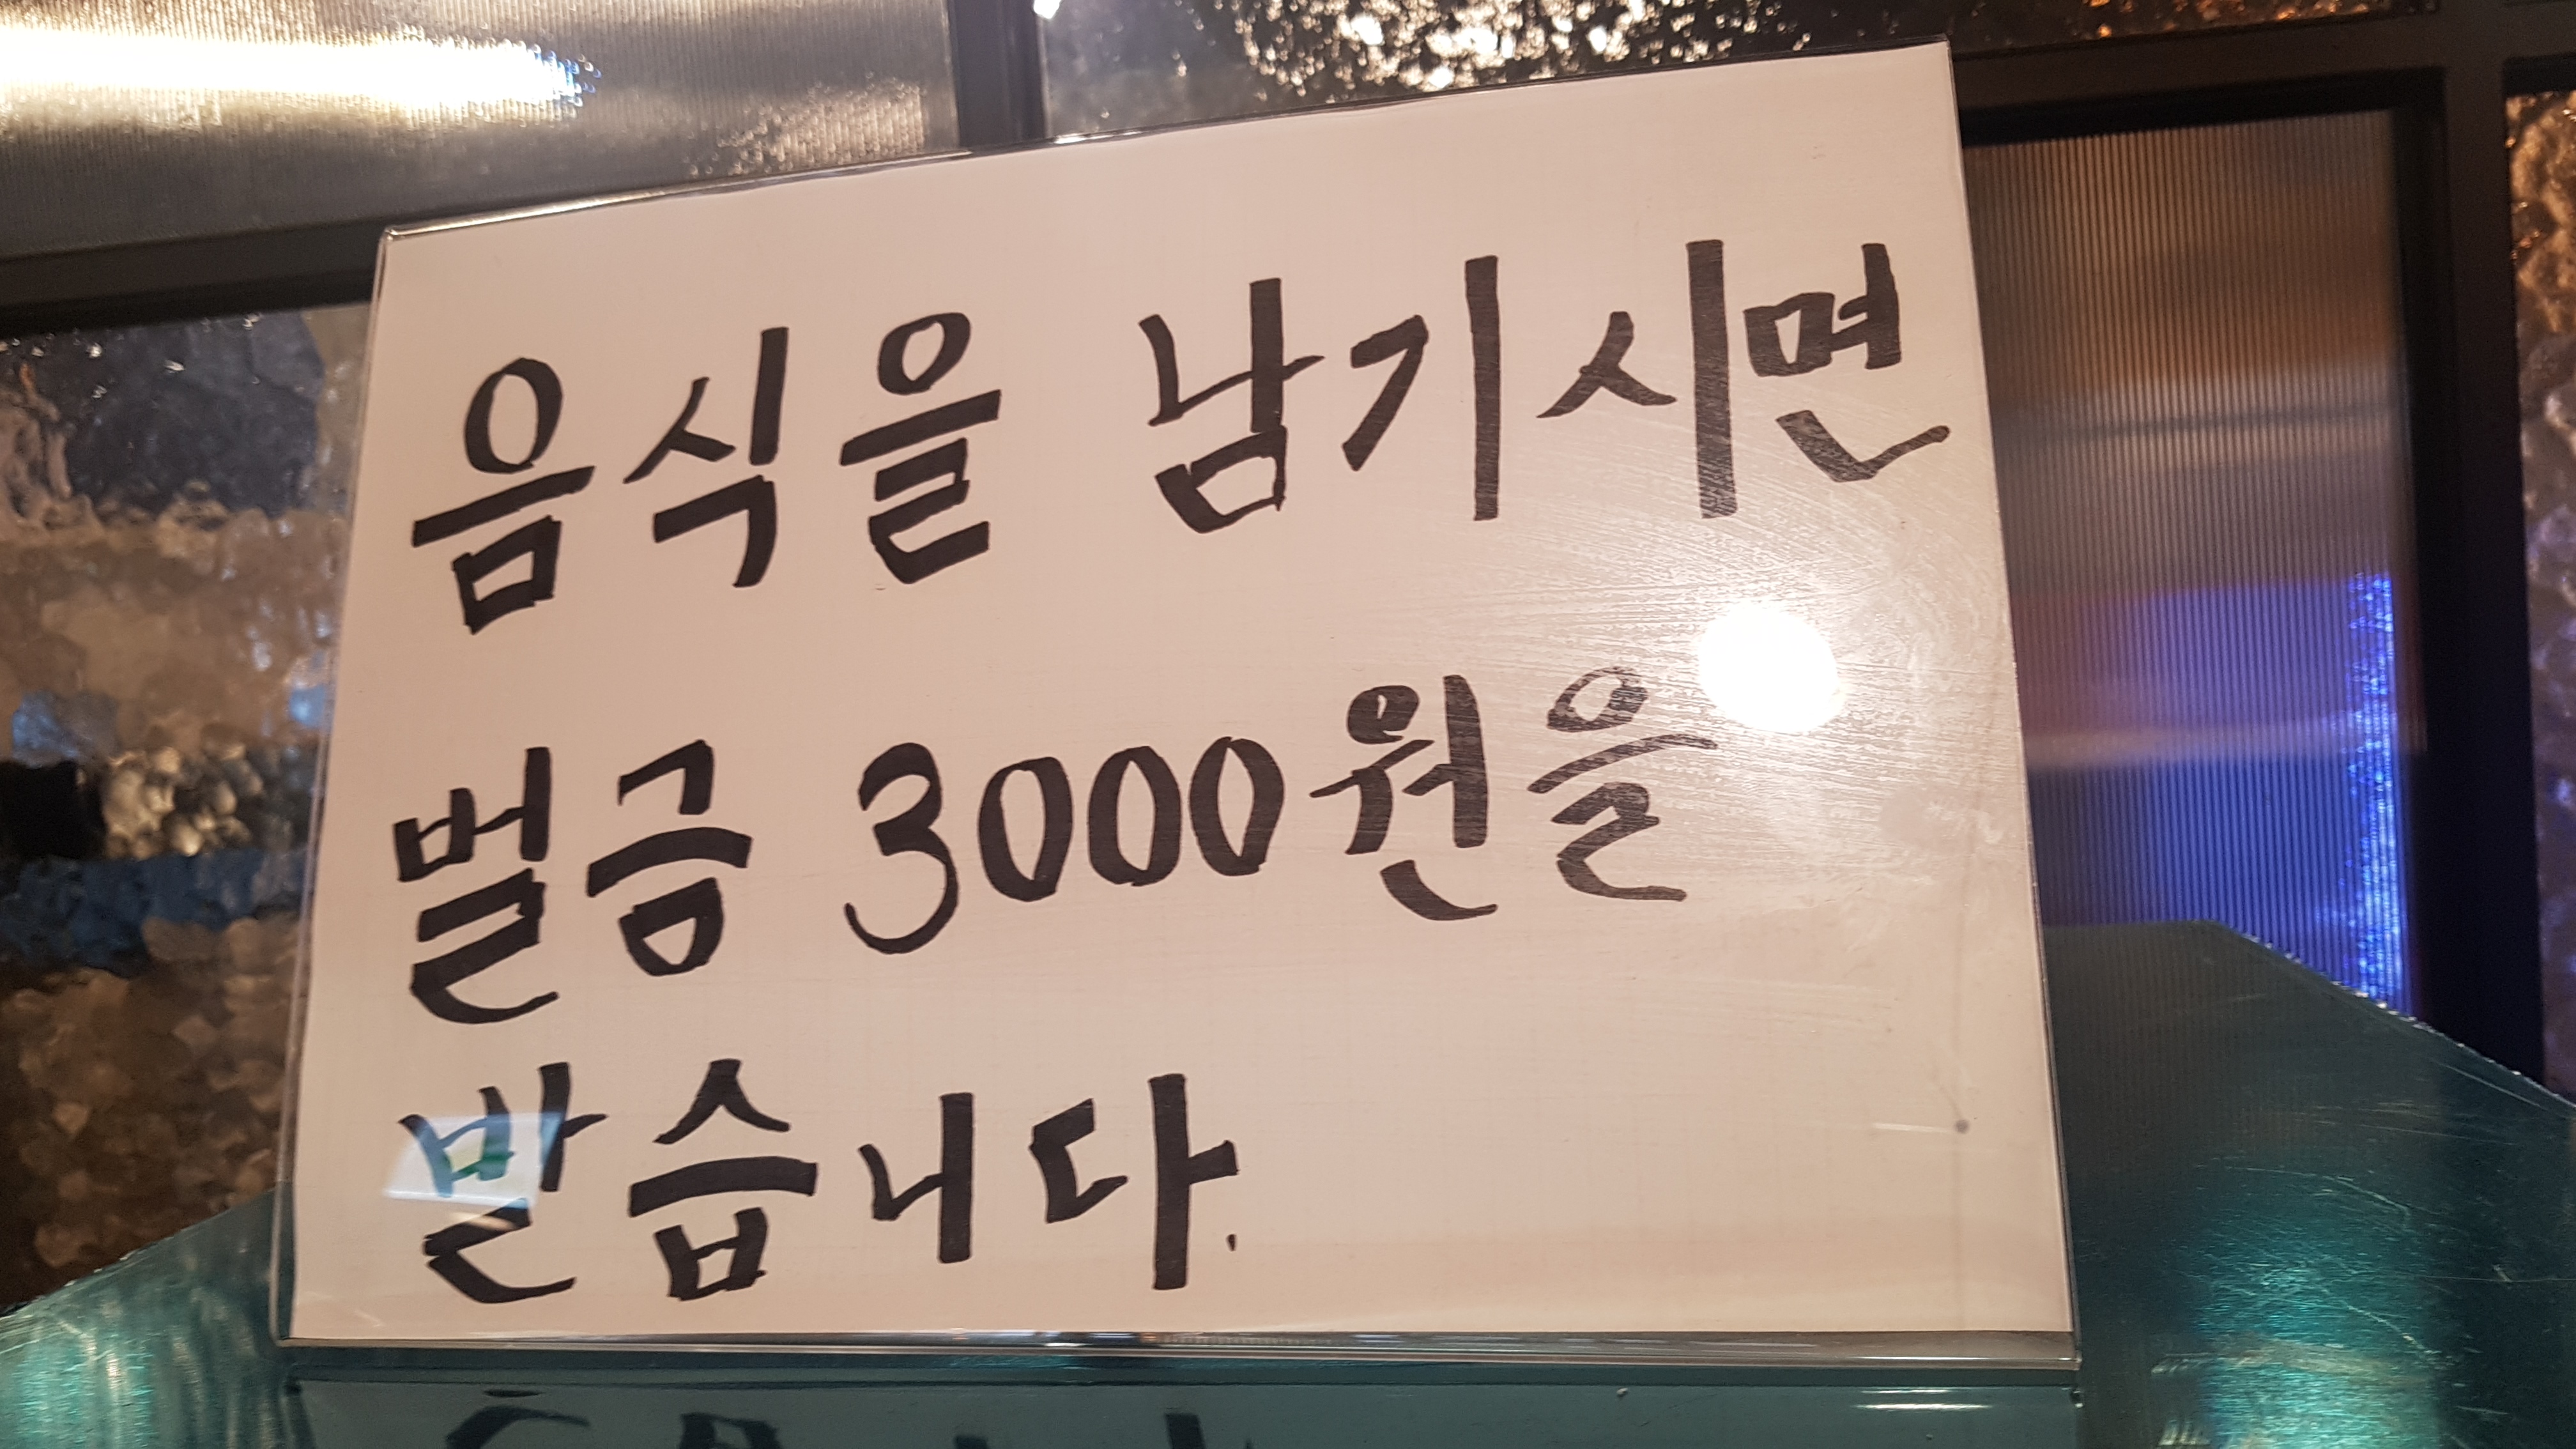 음식을 남기시면
벌금 3000원을
받습니다.